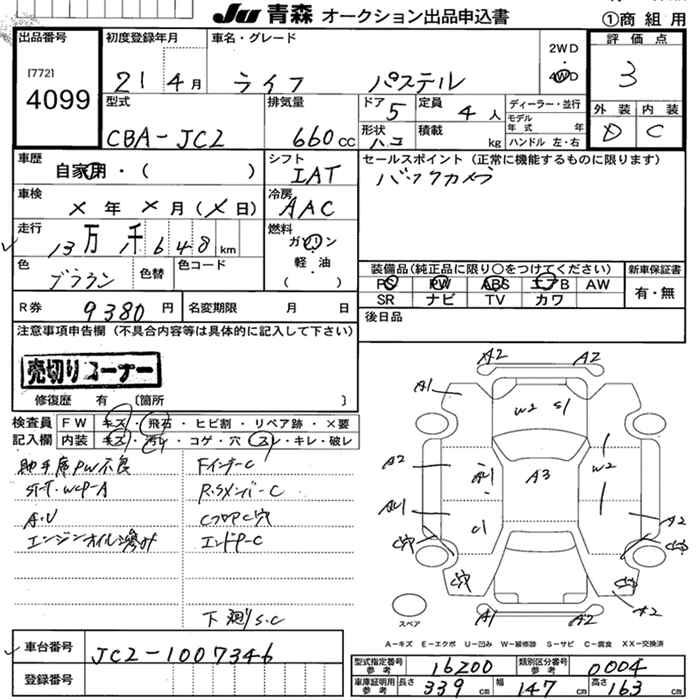 JU 青森 オークション出品申込書
①商組用
出品番号
[772]
4099
初度登録年月
21 4月
車名・グレード
ライフ パステル
2WD
4WD
評価点
3
型式
CBA-JC2
排気量
660CC
ドア
5
定員
4人
形状
ハコ
積載
kg
ディーラー・並行
モデル年式 年
ハンドル 左・右
外装
D
内装
C
車歴
自家用・( )
シフト
IAT
セールスポイント (正常に機能するものに限ります)
バックカメラ
車検
×年×月(×日)
冷房
AAC
走行
13万千648km
燃料
ガソリン
軽油
( )
色
ブラウン
色替
色コード
装備品(純正品に限り○をつけてください)
PS PW ABS エアB AW
SR ナビ TV カワ
新車保証書
有・無
R券
9380円
名変期限 月 日
後日品
注意事項申告欄 (不具合内容等は具体的に記入して下さい)
売切りコーナー
修復歴 有 〔箇所 〕
検査員記入欄
FW キズ・飛石・ヒビ割・リペア跡・×要
内装 キズ・汚れ・コゲ・穴・スレ・キレ・破レ
助手席PW不良
ST-T・WCP-A
A・U
エンジンオイル滲み
Fインナー C
R・Sメンバー C
CフロアC穴
エンドP-C
下廻りS.C
A2 A2
A1
W2 S1
A2
A3
W2
C1
A2
A1 A2
A2
スペア
A-キズ E-エクボ U-凹み W-補修跡 S-サビ C-腐食 XX-交換済
車台番号
JC2-1007346
登録番号
型式指定番号
参考
16200
類別区分番号
参考
0004
車庫証明用
参考
長さ 339cm 幅 147cm 高さ 163cm